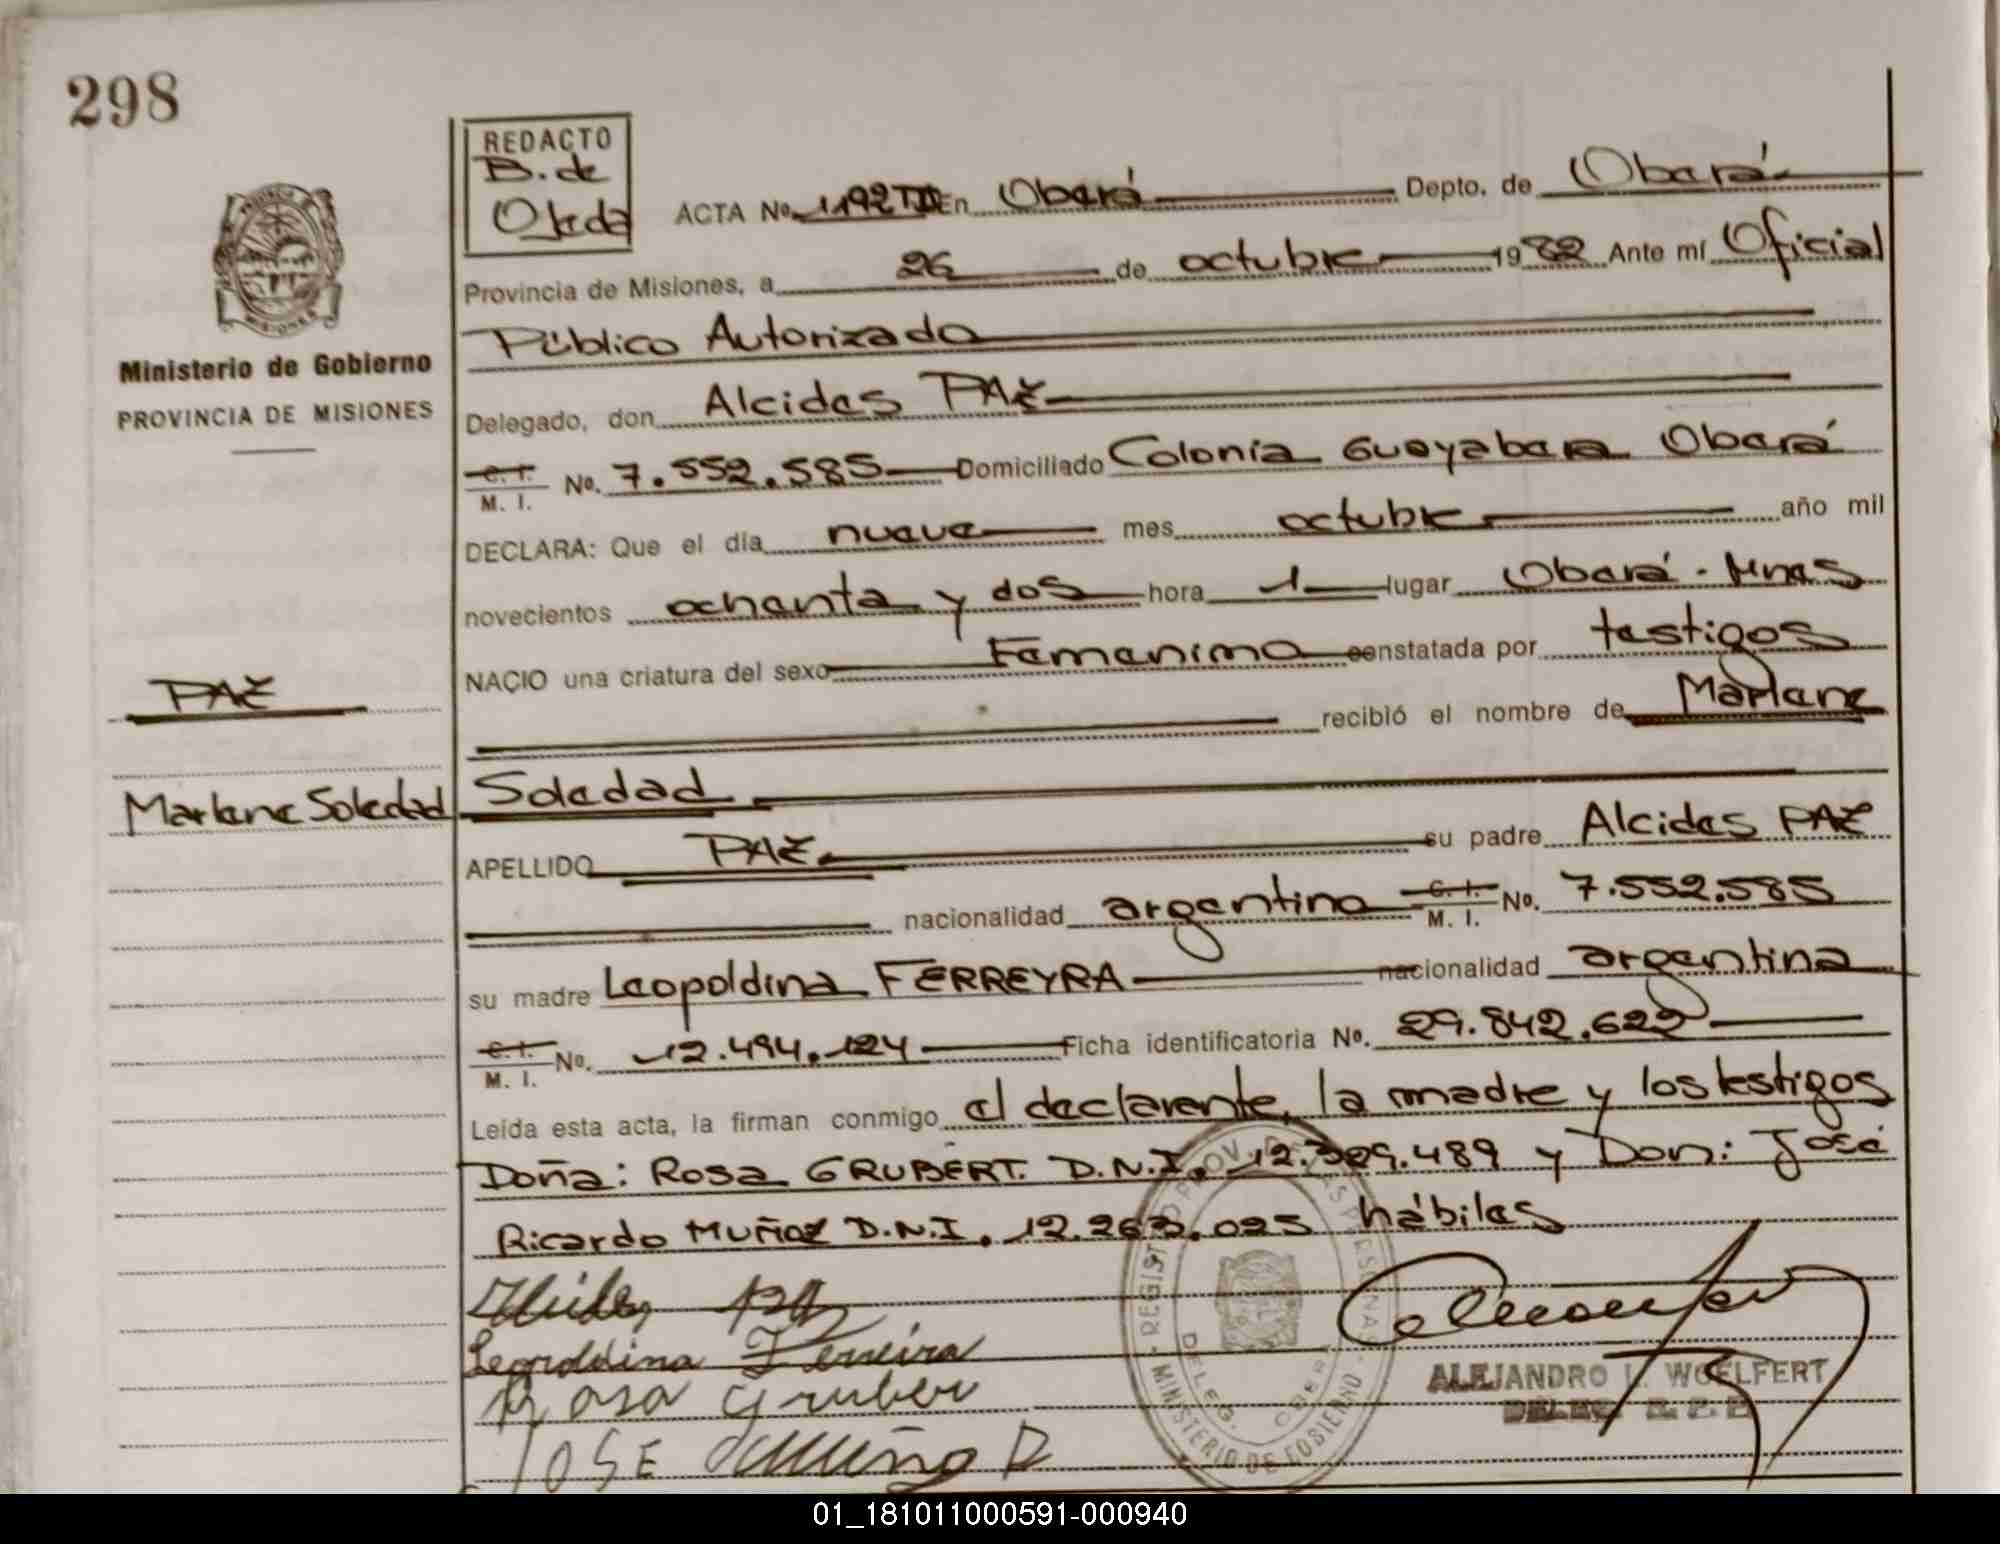 298
REDACTO
B. de
Ojeda
ACTA No. 1192 TII En Oberá Depto. de Oberá
Provincia de Misiones, a 26 de octubre 1982 Ante mí Oficial
Público Autorizado
Ministerio de Gobierno
PROVINCIA DE MISIONES
Delegado, don Alcides PAZ
C. I.
M. I. No. 7.552.585 Domiciliado Colonia Guayabera Oberá
DECLARA: Que el día nueve mes octubre año mil
novecientos ochenta y dos hora 1 lugar Oberá - Mnes
NACIO una criatura del sexo Femenino constatada por testigos
PAZ
recibió el nombre de Marlene
Marlene Soledad
Soledad
APELLIDO PAZ su padre Alcides PAZ
nacionalidad argentino C. I.
M. I. No. 7.552.585
su madre Leopoldina FERREYRA nacionalidad argentina
C. I.
M. I. No. 12.494.124 Ficha identificatoria No. 29.842.622
Leída esta acta, la firman conmigo el declarente, la madre y los testigos
Doña: Rosa GRUBERT. D.N.I. 12.309.489 y Don: José
Ricardo MUÑOZ D.N.I. 12.263.025 hábiles
Leopoldina Ferreira
Rosa Gruber
JOSE
REGIST PROV. DE LAS PERSONAS
MINISTERIO DE GOBIERNO
DELEG. OBERA
ALEJANDRO L. WOELFERT
DELEG. R. P. P.
01_181011000591-000940